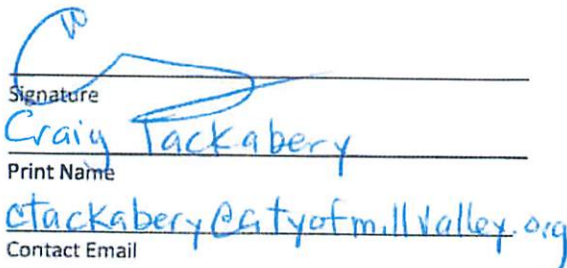 Signature
Craig Tackabery
Print Name
ctackabery@cityofmillvalley.org
Contact Email